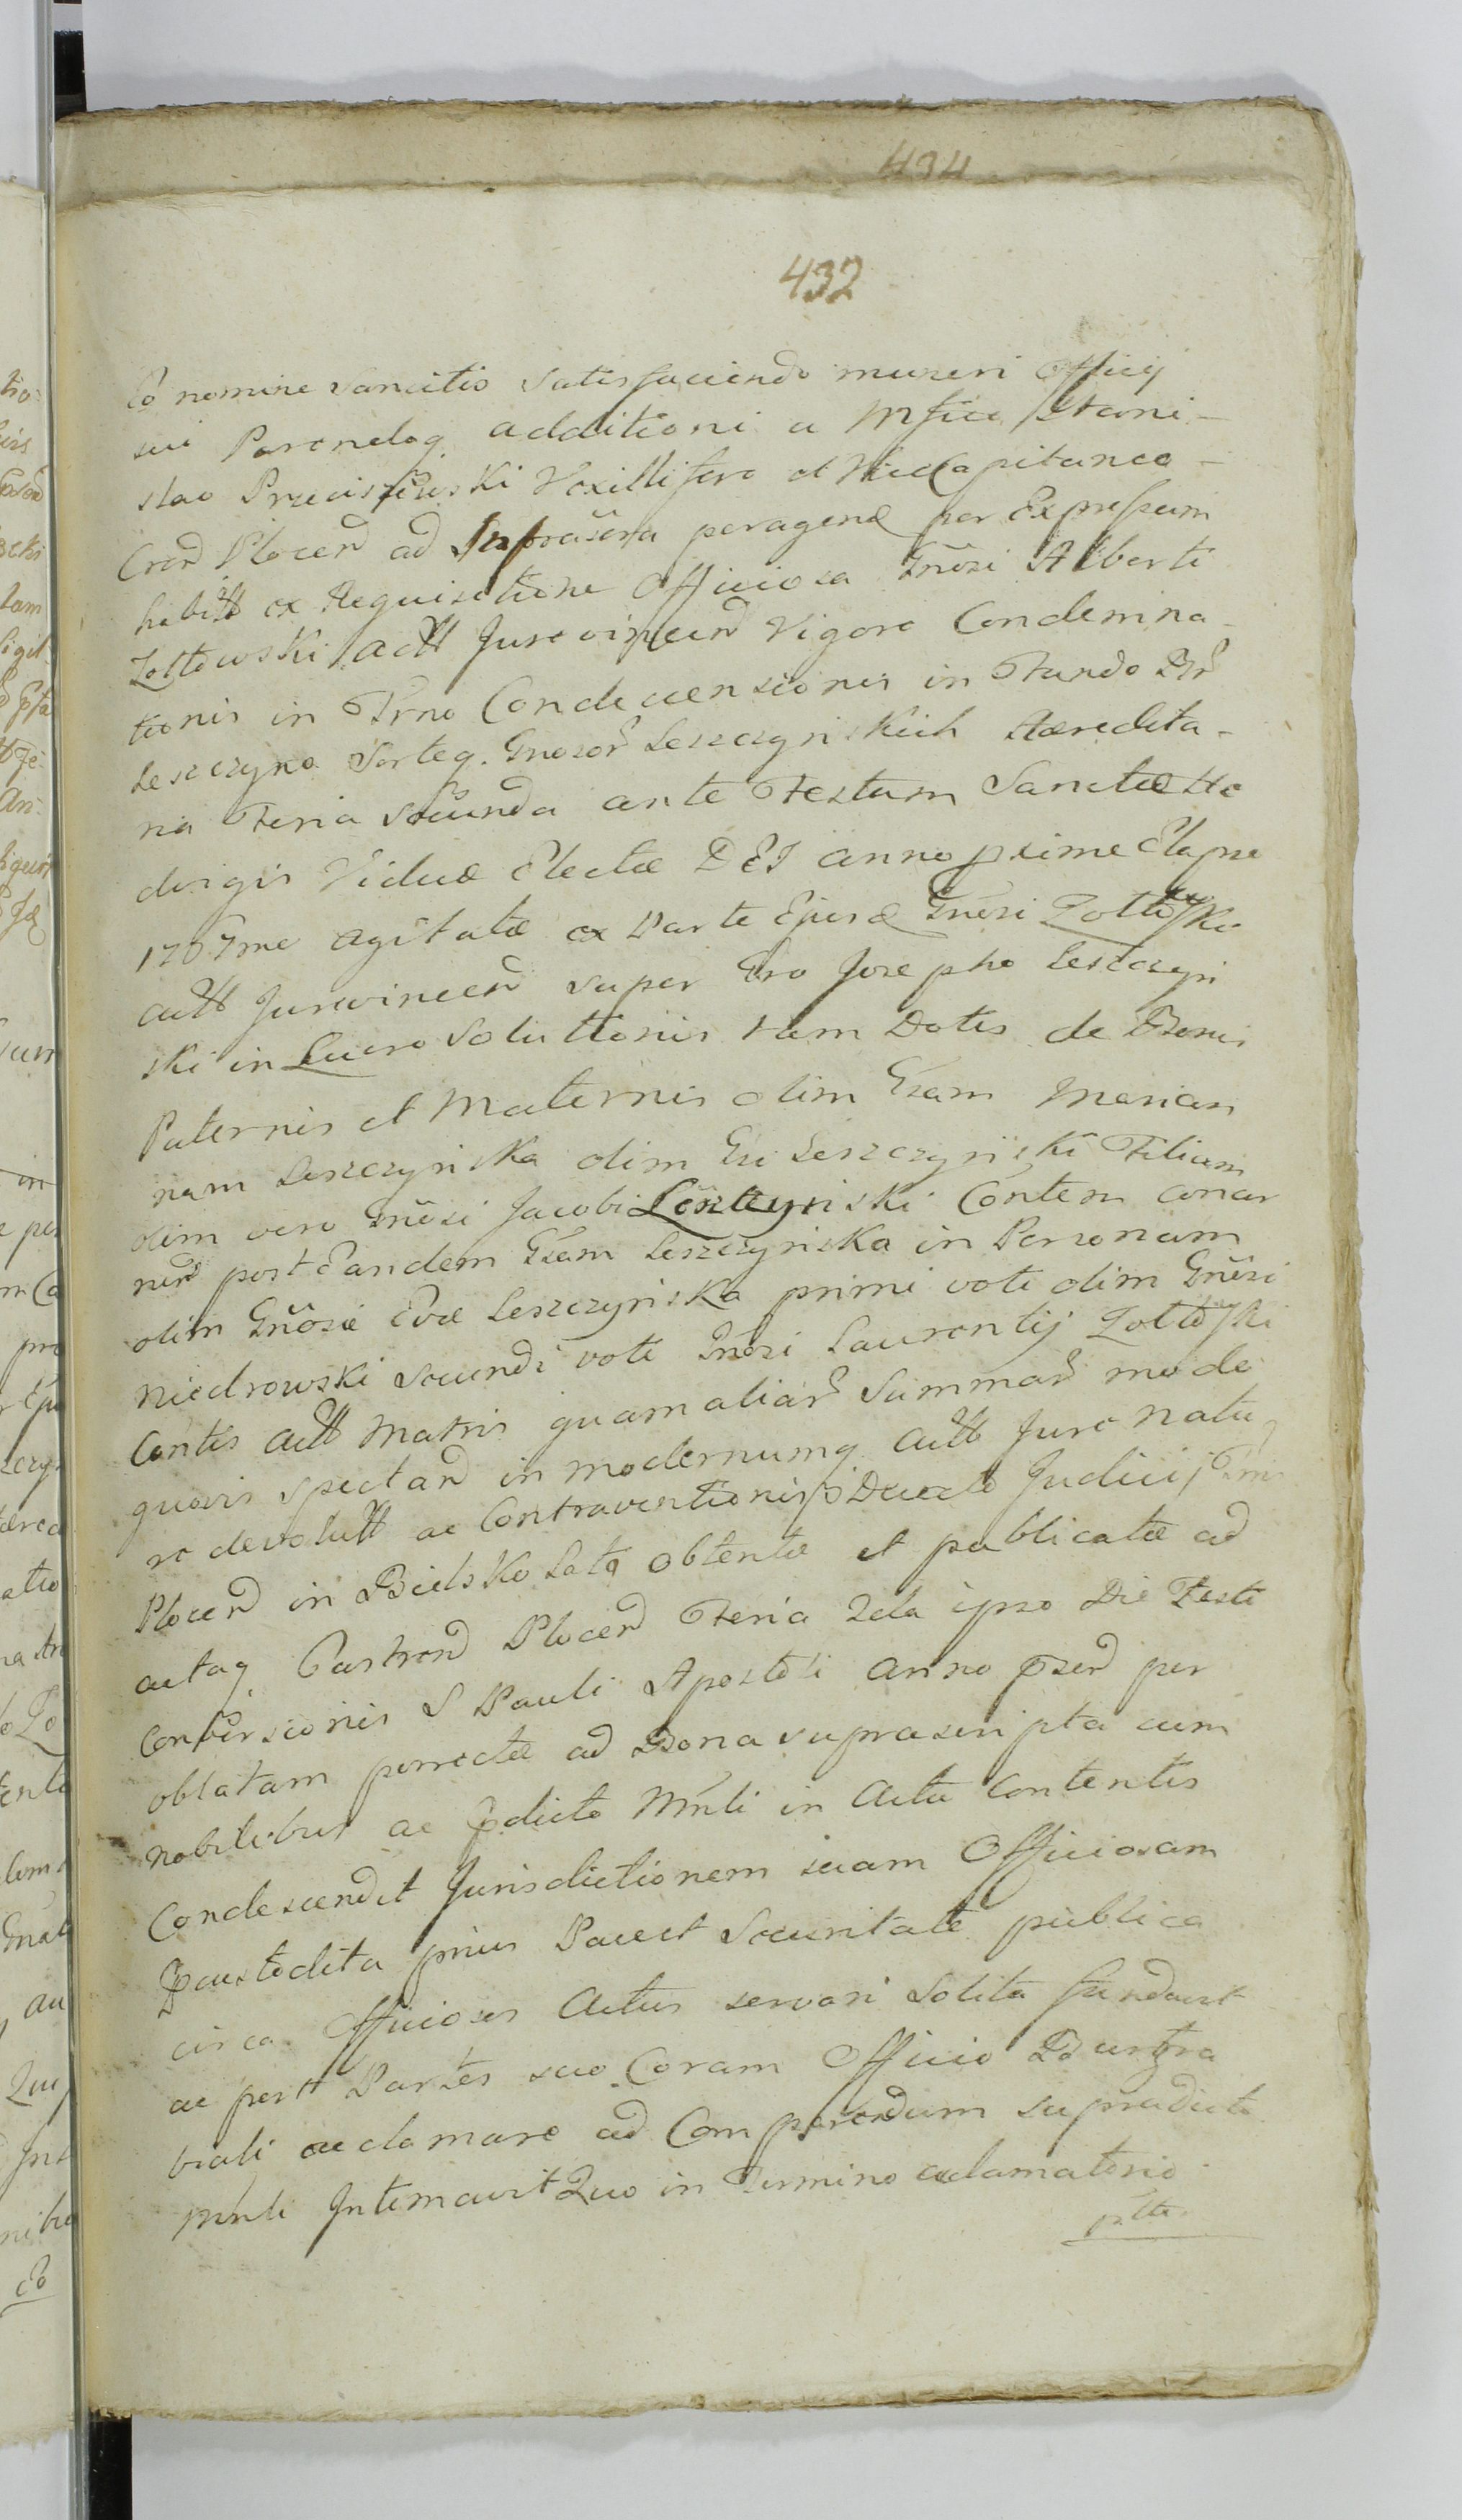 434
432
Eo nomine sancitio satisfaciendo muneri Officij
sui Parendoq. additioni a Mfico Stani-
slao Prziciszewski Vexillifero et ViceCapitaneo -
Cren Plocen ad Infrascra peragend per Expressum
habitt ex Requisitione Officiosa Gnosi Alberti
Zottowski actt Jurevincen Vigore Condemna-
tionis in Trno Condescensionis in Fundo Br
Leszczyno Sorteq. Gnosor Leszczynskich Haeredita-
ria Feria secunda ante Festum Sanctae He
dvigis Viduae Electae DEI anno prime Elapso
1707mo agitatae ex Parte Ejusd Gnosi Zottowski
actt Jurevincen super Gso Josepho Leszczyn
ski in Lucro Solutionis tam Dotis de Bonis
Paternis et Maternis olim Gsam Marian
nam Leszczynska olim Gsi Leszczynski Filiam
olim vero Gnosi Jacobi Leszczynski Contem concer
nen post Eandem Gsam Leszczynska in Personam
olim Gnosae Evae Leszczynska primi voti olim Gnosi
Niedrowski secundi voti Gnosi Laurentij Zottowski
Contis actt Matris quam aliar Summar modo
quovis spectan in modernumq. actt Jure Natu
re devolutt ac Contraventionis Decreto Judicij Tris
Plocen in Bielsko lato obtentae et publicatae ad
actaq. Castren Plocen Feria 2da ipso Die Festi
Conversionis S Pauli Apostoli anno psen per
oblatam porrectae ad Bona suprascripta cum
nobilibus ac pdicto Mnli in Actu Contentis
Condescendit Jurisdictionem suam Officiosam
Pcustodita prius Pace et Securitate publica
circa Officiosos Actus servari solita fundavit
ac partt Partes suo Coram Officio Burgra
biali acclamare ad Comparendum supradicto
Mnli Intimavit Quo in Termino acclamatorio
ptta